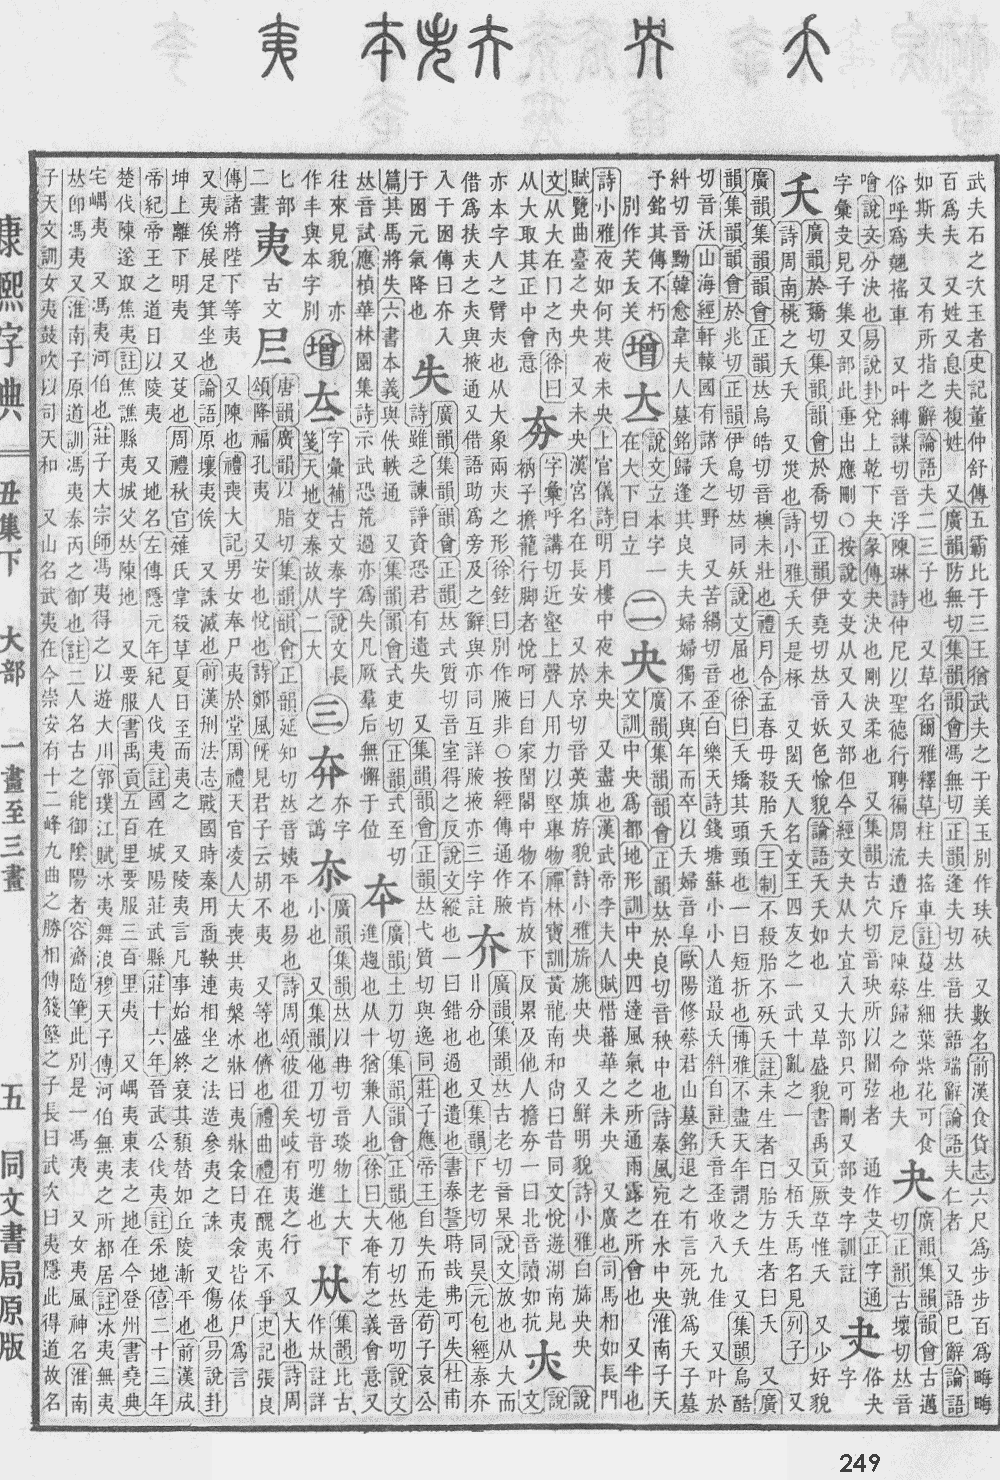 武夫石之次玉者史記董仲舒傳五霸比于三王猶武夫之于美玉別作玞砆 又數名前漢食貨志六尺爲步步百爲畮畮
百爲夫 又姓又息夫複姓 又廣韻防無切集韻韻會馮無切正韻逢夫切𠀤音扶語端辭論語夫仁者 又語已辭論語
如斯夫 又有所指之辭論語夫二三子也 又草名爾雅釋草柱夫搖車註蔓生細葉紫花可食 夬 廣韻集韻韻會古邁
俗呼爲翹搖車 又叶縛謀切音浮陳琳詩仲尼以聖德行聘徧周流遭斥戹陳蔡歸之命也夫 切正韻古壞切𠀤音
噲說文分決也易說卦兌上乾下夬彖傳夬決也剛決柔也 又集韻古穴切音玦所以闓弦者 通作叏正字通 叏 俗夬
字彙叏見子集又部此重出應刪○按說文叏从又入又部但今經文夬从大宜入大部只可刪又部叏字訓註 字
夭 廣韻於嬌切集韻韻會於喬切正韻伊堯切𠀤音妖色愉貌論語夭夭如也 又草盛貌書禹貢厥草惟夭 又少好貌
詩周南桃之夭夭 又災也詩小雅夭夭是椓 又閎夭人名文王四友之一武十亂之一 又栢夭馬名見列子 又
廣韻集韻韻會正韻𠀤烏皓切音襖未壯也禮月令孟春毋殺胎夭王制不殺胎不殀夭註未生者曰胎方生者曰夭 又廣
韻集韻韻會於兆切正韻伊鳥切𠀤同殀說文屈也徐曰夭矯其頭頸也一曰短折也博雅不盡天年謂之夭 又集韻烏酷
切音沃山海經軒轅國有諸夭之野 又苦緺切音歪白樂天詩錢塘蘇小小人道最夭斜自註夭音歪收入九佳 又叶於
糾切音黝韓愈韋夫人墓銘歸逢其良夫夫婦婦獨不與年而卒以夭婦音阜歐陽修蔡君山墓銘退之有言死孰爲夭子墓
予銘其傳不朽
別作芺 增 𡗓 在大下曰立 說文立本字一 二 央 廣韻集韻韻會正韻𠀤於良切音秧中也詩秦風宛在水中央淮南子天
文訓中央爲都地形訓中央四達風氣之所通雨露之所會也 又半也
詩小雅夜如何其夜未央上官儀詩明月樓中夜未央 又盡也漢武帝李夫人賦惜蕃華之未央 又廣也司馬相如長門
賦覽曲臺之央央 又未央漢宮名在長安 又於京切音英旗旂貌詩小雅旂旐央央 又鮮明貌詩小雅白斾央央 夾 說
文从大在冂之內徐曰
从大取其正中會意 夯 字彙呼講切近壑上聲人用力以堅舉物禪林寶訓黃龍南和尚曰昔同文悅遊湖南見
衲子擔籠行腳者悅呵曰自家閨閣中物不肯放下反累及他人擔夯一曰北音讀如抗
亦本字人之臂夾也从大象兩夾之形徐鉉曰別作腋非○按經傳通作腋 夰 廣韻集韻𠀤古老切音杲說文放也从大而
借爲扶夾之夾與掖通又借語助爲旁及之辭與亦同互詳腋掖亦三字註 八分也 又集韻下老切同昊元包經泰夰
入于困傳曰夰入
于困元氣降也 失 廣韻集韻韻會正韻𠀤式質切音室得之反說文縱也一曰錯也過也遺也書泰誓時哉弗可失杜甫
詩雖乏諫諍資恐君有遺失 又集韻韻會正韻𠀤弋質切與逸同莊子應帝王自失而走荀子哀公
篇其馬將失六書本義與佚軼通 又集韻韻會式吏切正韻式至切
𠀤音試應楨華林園集詩示武恐荒過亦爲失凡厥羣后無懈于位 夲 廣韻土刀切集韻韻會正韻他刀切𠀤音叨說文
進趨也从十猶兼人也徐曰大奄有之義會意又
往來見貌 亦
作丰與本字別 增 夳 字彙補古文泰字說文長箋天地交泰故从二大 三 夲 夲字之譌 夵 廣韻集韻𠀤以冉切音琰物上大下小也 又集韻他刀切音叨進也 夶 集韻比古作夶註詳
匕部二畫 夷 古文 𡰥 唐韻廣韻以脂切集韻韻會正韻延知切𠀤音姨平也易也詩周頌彼徂矣岐有夷之行 又大也詩周
頌降福孔夷 又安也悅也詩鄭風旣見君子云胡不夷 又等也儕也禮曲禮在醜夷不爭史記張良
傳諸將陛下等夷 又陳也禮喪大記男女奉尸夷於堂周禮天官凌人大喪共夷槃冰牀曰夷牀衾曰夷衾皆依尸爲言
又夷俟展足箕坐也論語原壤夷俟 又誅滅也前漢刑法志戰國時秦用商鞅連相坐之法造參夷之誅 又傷也易說卦
坤上離下明夷 又芟也周禮秋官薙氏掌殺草夏日至而夷之 又陵夷言凡事始盛終衰其頹替如丘陵漸平也前漢成
帝紀帝王之道日以陵夷 又地名左傳隱元年紀人伐夷註國在城陽莊武縣莊十六年晉武公伐夷註采地僖二十三年
楚伐陳遂取焦夷註焦譙縣夷城父𠀤陳地 又要服書禹貢五百里要服三百里夷 又嵎夷東表之地在今登州書堯典
宅嵎夷 又馮夷河伯也莊子大宗師馮夷得之以遊大川郭璞江賦冰夷舞浪穆天子傳河伯無夷之所都居註冰夷無夷
𠀤卽馮夷又淮南子原道訓馮夷泰丙之御也註二人名古之能御陰陽者容齋隨筆此別是一馮夷 又女夷風神名淮南
子天文訓女夷鼓吹以司天和 又山名武夷在今崇安有十二峰九曲之勝相傳籛鏗之子長曰武次曰夷隱此得道故名
康熙字典 丑集下 大部 一畫至三畫 五 同文書局原版
249